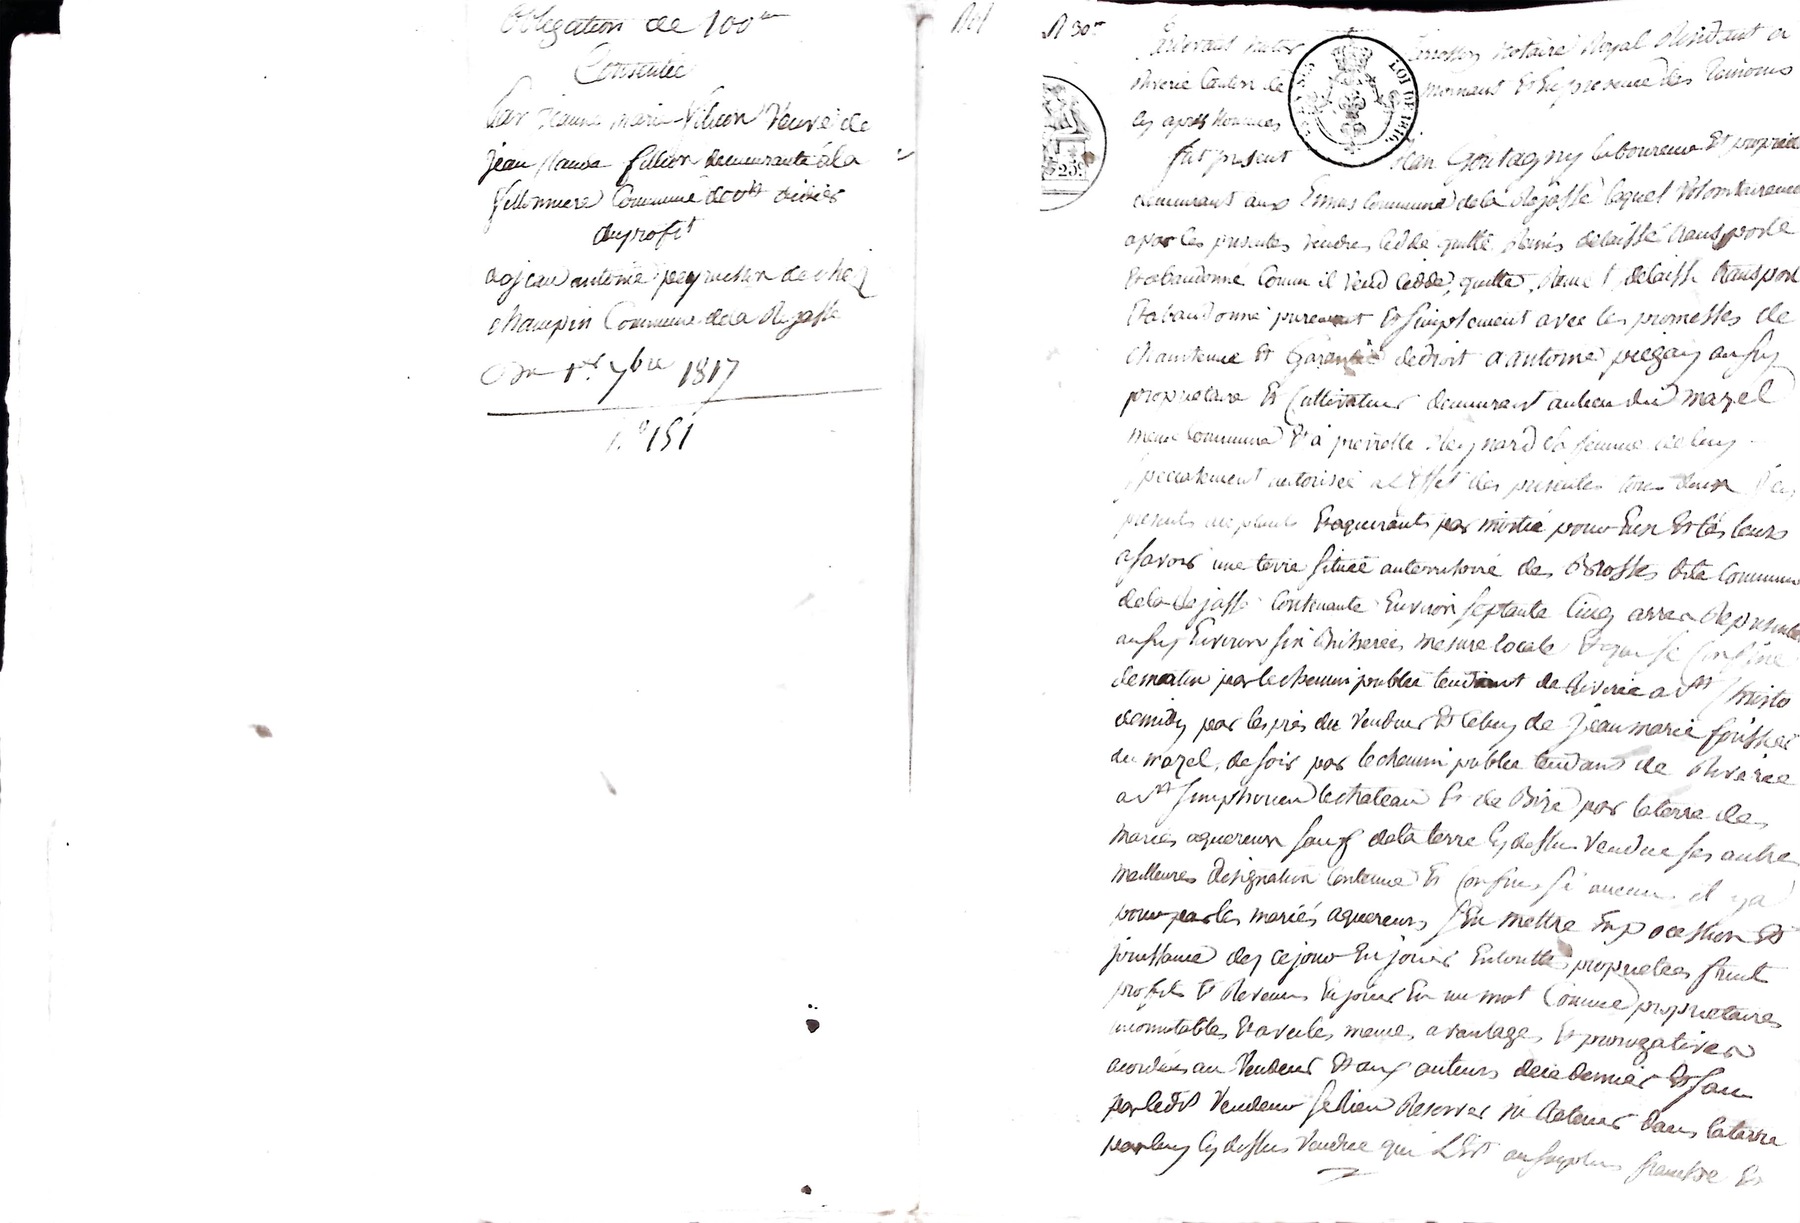 Obligation de 100 tt
Consentie
Par jeanne marie filion Veuve de
jean Claude fillion demeurante à la
fillonniere Commune de st didier
du profit
a jean antoine peyrachon de chez
champin Commune de la Rajasse
Du 1er. 7bre 1817
N.o 151
N 30
Pardevant notaire Royal Résidant a
Riverie Canton de mornant Et En presence des Temoins
cy apres Nommes
fut present jean Goutagny laboureur Et proprié
demeurant aux Ennas Commune de la Rajasse lequel Volontairement
a par les presentes Vendu cedde quitté Remis delaissé transporté
Et abandonné Comm il Vend cedde, quitte, Remet, delaisse transport
Et abandonne purement Et simplement avec les promesses de
maintenue Et Garantie de droit a antoine
proprietaire Et Cultivateur demeurant au lieu du mazel
meme Commune Et a pierrotte Reynard sa femme de luy
specialement autorisée a l'Effet des presentes tous deux
presents acceptants Et aquerants par moitié pour Eux Et les leurs
a savoir une terre située au territoire des Brosses dite Commune
de la Rajasse Contenante Environ septante Cinq arres
Environ six Bicherées mesure locale Et qui se Confine
de matin par le chemin public tendant de Riverie a st Christo
de midy par les prés du Vendeur Et celuy de jean marie
du mazel, de soir par le chemin public tendant de Riverie
a st simphorien le chateau Et de Bize par la terre des
mariés aquereurs sauf de la terre cy dessus Vendue ses autres
meilleures designation Contenue Et Confins si aucuns il y a
pour par les mariés aquereurs s'En mettre En pocession Et
jouissance dez ce jour En jouir En toutte proprietée fruit
profits Et Revenus En jouir En un mot Comme proprietaires
incomutables Et avec les memes avantages Et prerogatives
acordées au Vendeur Et aux auteurs de ce dernier Et sans
par ledit Vendeur se Rien Reserver ni Retenir dans la terre
par luy cy dessus Vendue qui Est au surplus franche Et